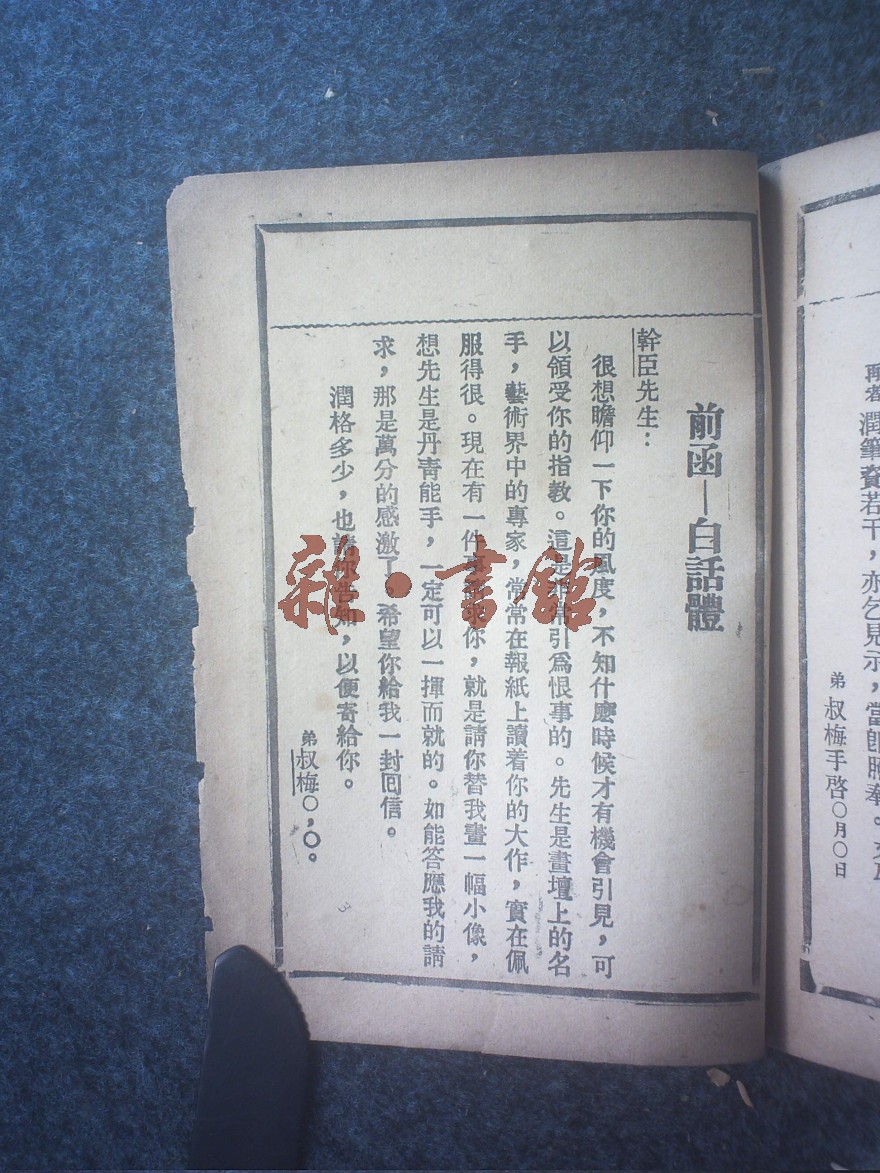 潤筆資若干，亦乞見示，當卽
弟 叔梅手啓○月○日
前函—白話體
幹臣先生：
很想瞻仰一下你的風度，不知什麼時候才有機會引見，可
以領受你的指教。這是非常引爲恨事的。先生是畫壇上的名
手，藝術界中的專家，常常在報紙上讀着你的大作，實在佩
服得很。現在有一件事要求你，就是請你替我畫一幅小像，
想先生是丹靑能手，一定可以一揮而就的。如能答應我的請
求，那是萬分的感激了。希望你給我一封囘信。
潤格多少，也請你告知，以便寄給你。
弟叔梅○，○。
3
雜·書館